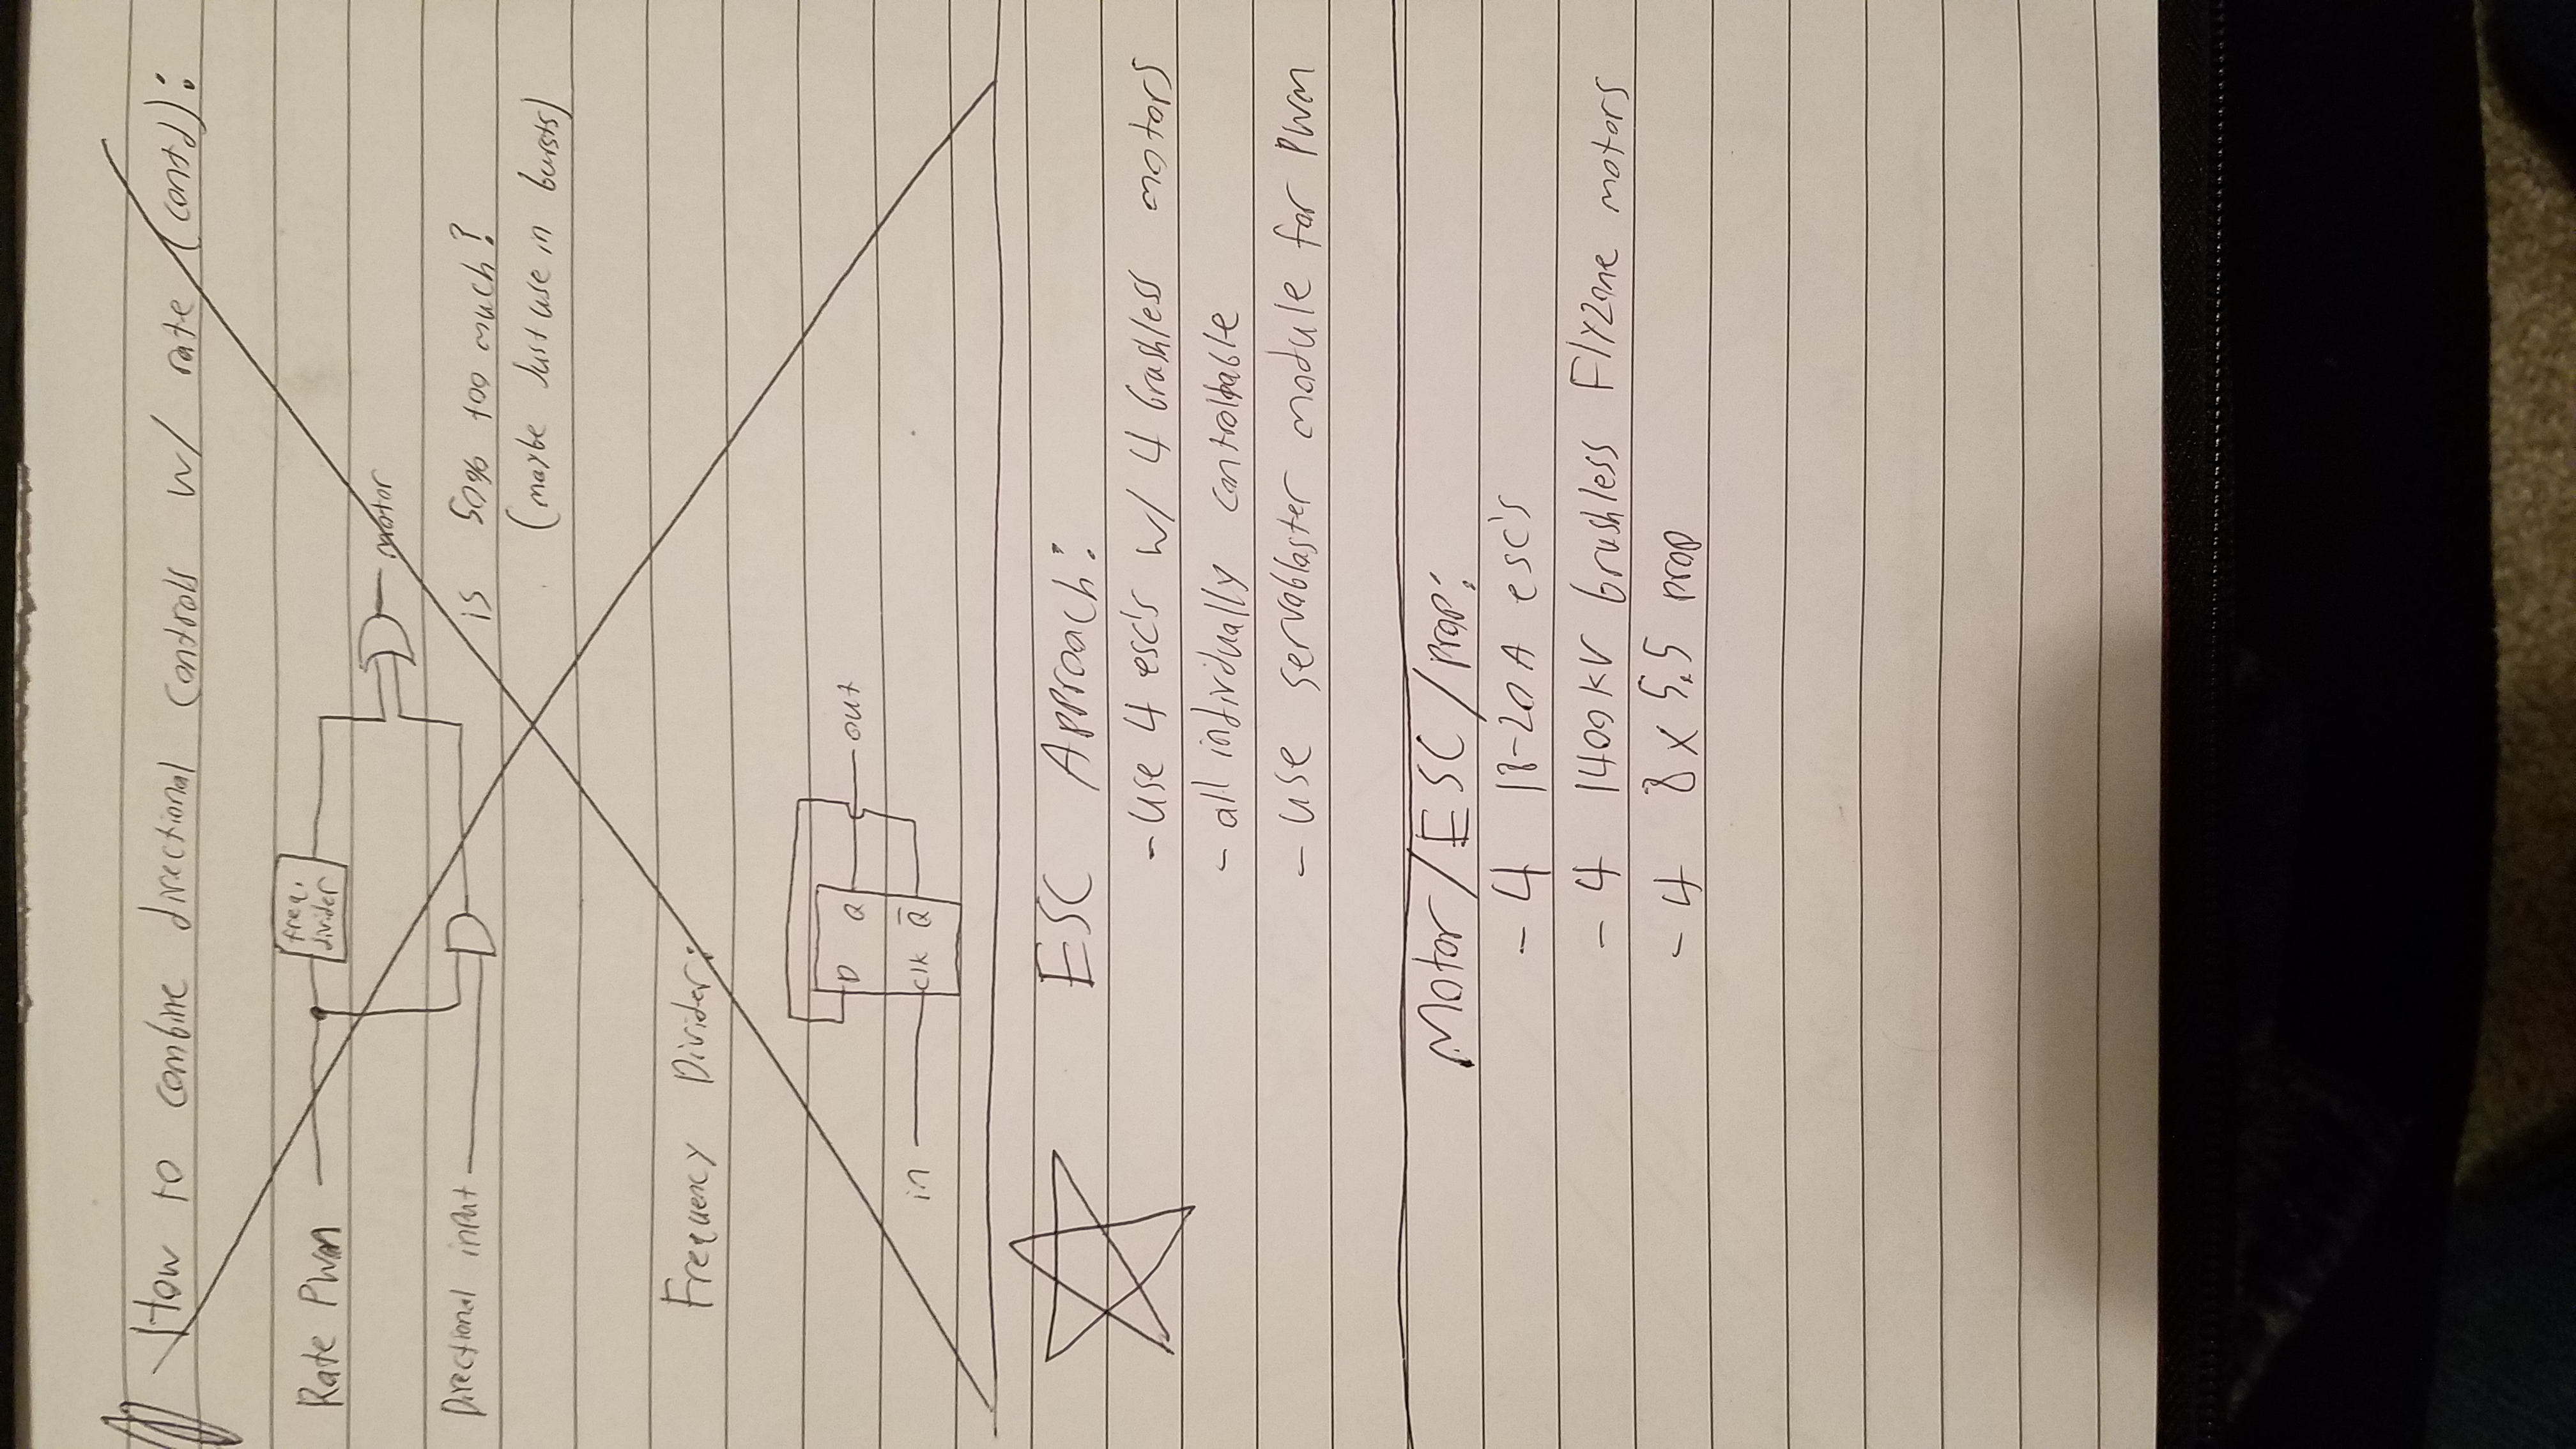 How to combine directional controls w/ rate (contd):
freq.
divider
Rate PWM
motor
Directional input
is 50% too much?
(maybe Just use in bursts)
Frequency Divider:
D Q out
in clk Q̅
ESC Approach:
- use 4 esc's w/ 4 brushless motors
- all individually controllable
- use servoblaster module for PWM
Motor/ESC/prop:
- 4 18-20A esc's
- 4 1400KV brushless Flyzone motors
- 4 8x5.5 prop